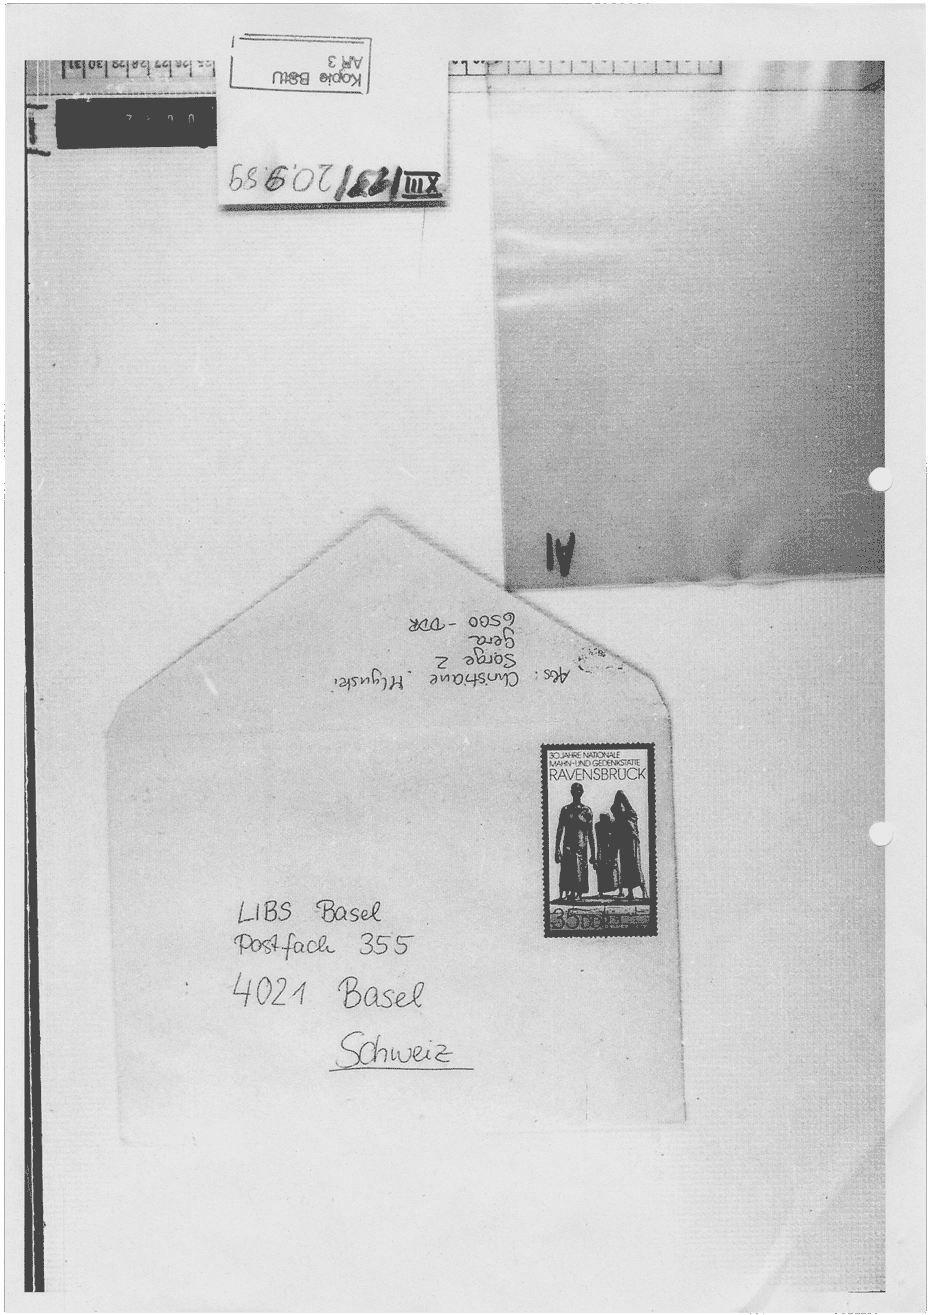 Kopie BStU
AR 3
XIII/ 20.9.89
AI
Abs.: Christiane
Sorge 2
Gera
6500 - DDR
30 JAHRE NATIONALE
MAHN- UND GEDENKSTÄTTE
RAVENSBRÜCK
35
LIBS Basel
Postfach 355
4021 Basel
Schweiz